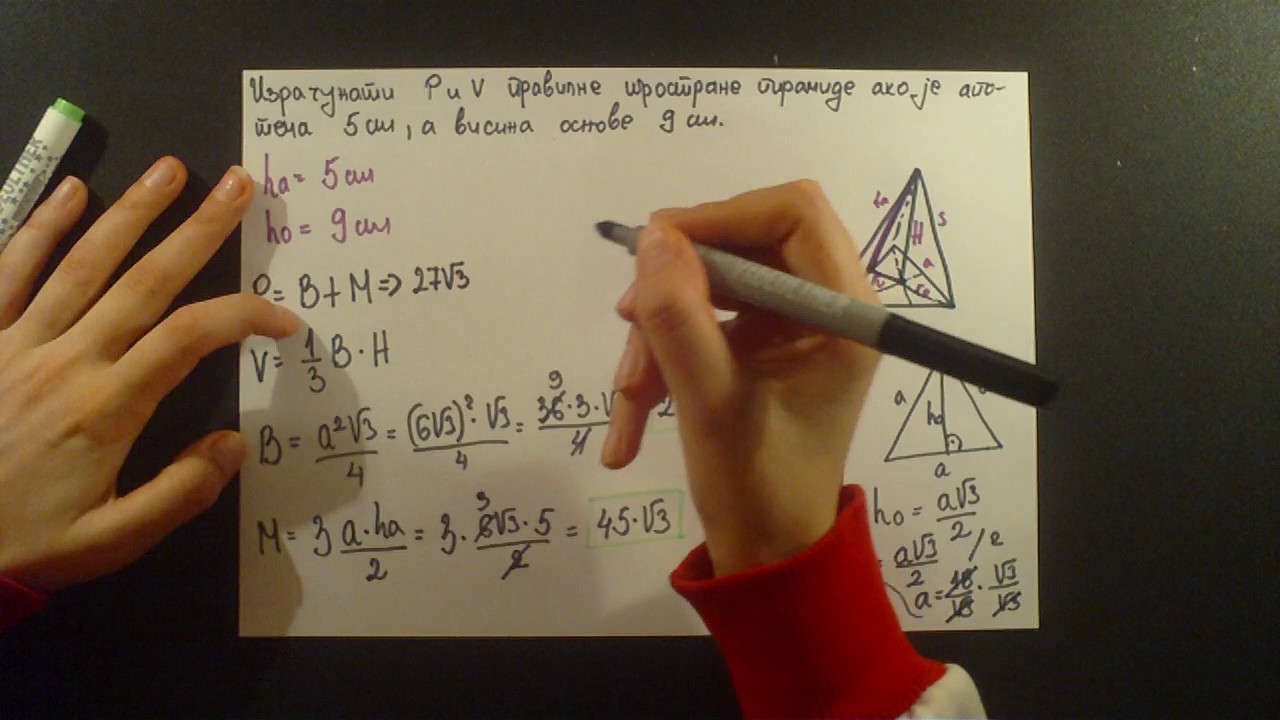 Израчунати P и V правилне тростране пирамиде ако је апо-
тема 5cm, а висина основе 9cm.
ha= 5cm
ho= 9cm
P= B+M=> 27√3
V= 1/3 B·H
B= a²√3/4 = (6√3)²·√3/4 = 36·3·√ 9 /4 2
M= 3 a·ha/2 = 3· 6√3·5 3 /2 = 45·√3
ha
H
s
a
a
ho
a
ho= a√3/2
= a√3/2 /2
a= 18/√3 · √3/√3